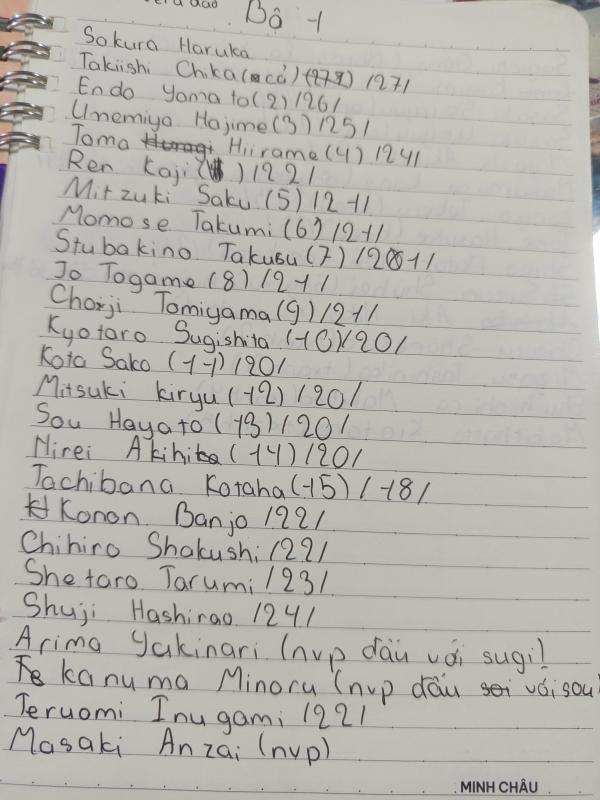 Bộ 1
Sakura Haruka
Takiishi Chika (cả) /271/
Endo Yamato (2) /26/
Umemiya Hajime (3) /25/
Toma Hiirame (4) /24/
Ren Kaji ( ) /22/
Mitzuki Saku (5) /21/
Momose Takumi (6) /21/
Stubakino Takusu (7) /201/
Jo Togame (8) /21/
Choji Tomiyama (9) /21/
Kyotaro Sugishita (10) /20/
Kota Sako (11) /20/
Mitsuki kiryu (12) /20/
Sou Hayato (13) /20/
Nirei Akihiko (14) /20/
Tachibana Kotaha (15) /18/
Konon Banjo /22/
Chihiro Shakushi /22/
Shetaro Tarumi /23/
Shuji Hashirao /24/
Arima Yukinari (nvp đấu với sugi)
kanuma Minoru (nvp đấu với sou)
Teruomi Inugami /22/
Masaki Anzai (nvp)
MINH CHÂU